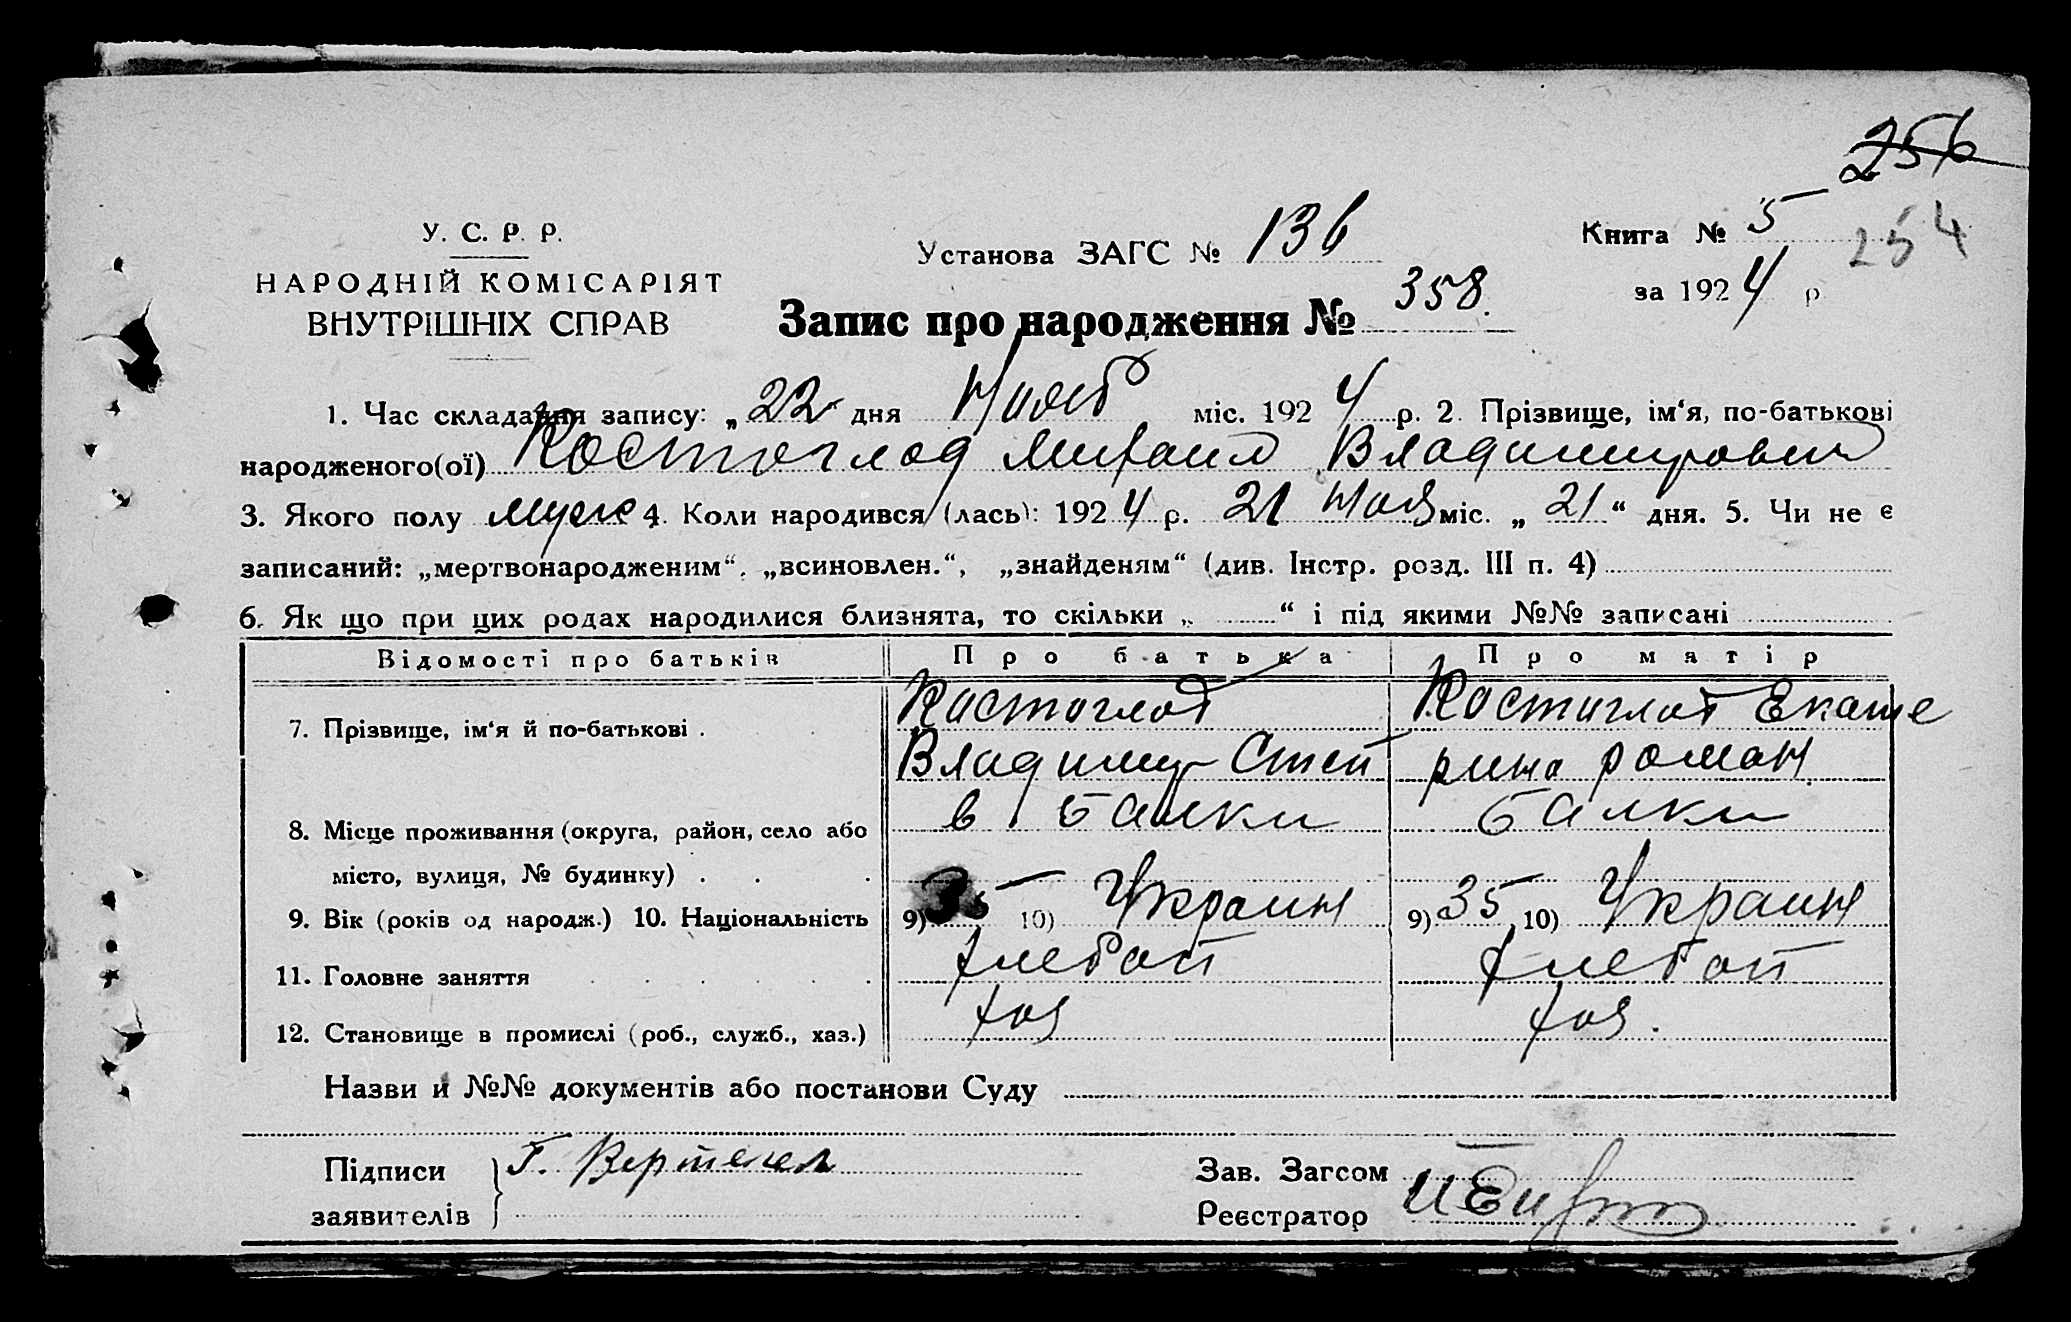 256
У. С. Р. Р.
Установа ЗАГС № 136
Книга № 5
254
НАРОДНІЙ КОМІСАРІЯТ
за 1924 р
ВНУТРІШНІХ СПРАВ
Запис про народження № 358.
1. Час складання запису: „22“ дня Нояб міс. 1924 р. 2. Прізвище, ім‘я, по-батькові
народженого(ої) Костоглод Михаил Владимирович
3. Якого полу муж 4. Коли народився/(лась): 1924 р. 21 Ноя міс. „21“ дня. 5. Чи не є
записаний: „мертвонародженим“, „всиновлен.“, „знайденям“ (див. Інстр. розд. III п. 4)
6. Як що при цих родах народилися близнята, то скільки „ “ і під якими №№ записані
Відомості про батьків Про батька Про матір
7. Прізвище, ім‘я й по-батькові . Костоглод Костоглод Екате
Владимир Степ рина роман
8. Місце проживання (округа, район, село або в Балки Балки
місто, вулиця, № будинку) . . .
9. Вік (років од народж.) 10. Національність 9) 35 10) Украин 9) 35 10) Украин
11. Головне заняття . . . . . . хлебоп хлебоп
12. Становище в промислі (роб., служб., хаз.) хоз хоз.
Назви и №№ документів або постанови Суду
Підписи Г. Вертегел Зав. Загсом
заявителів Реєстратор